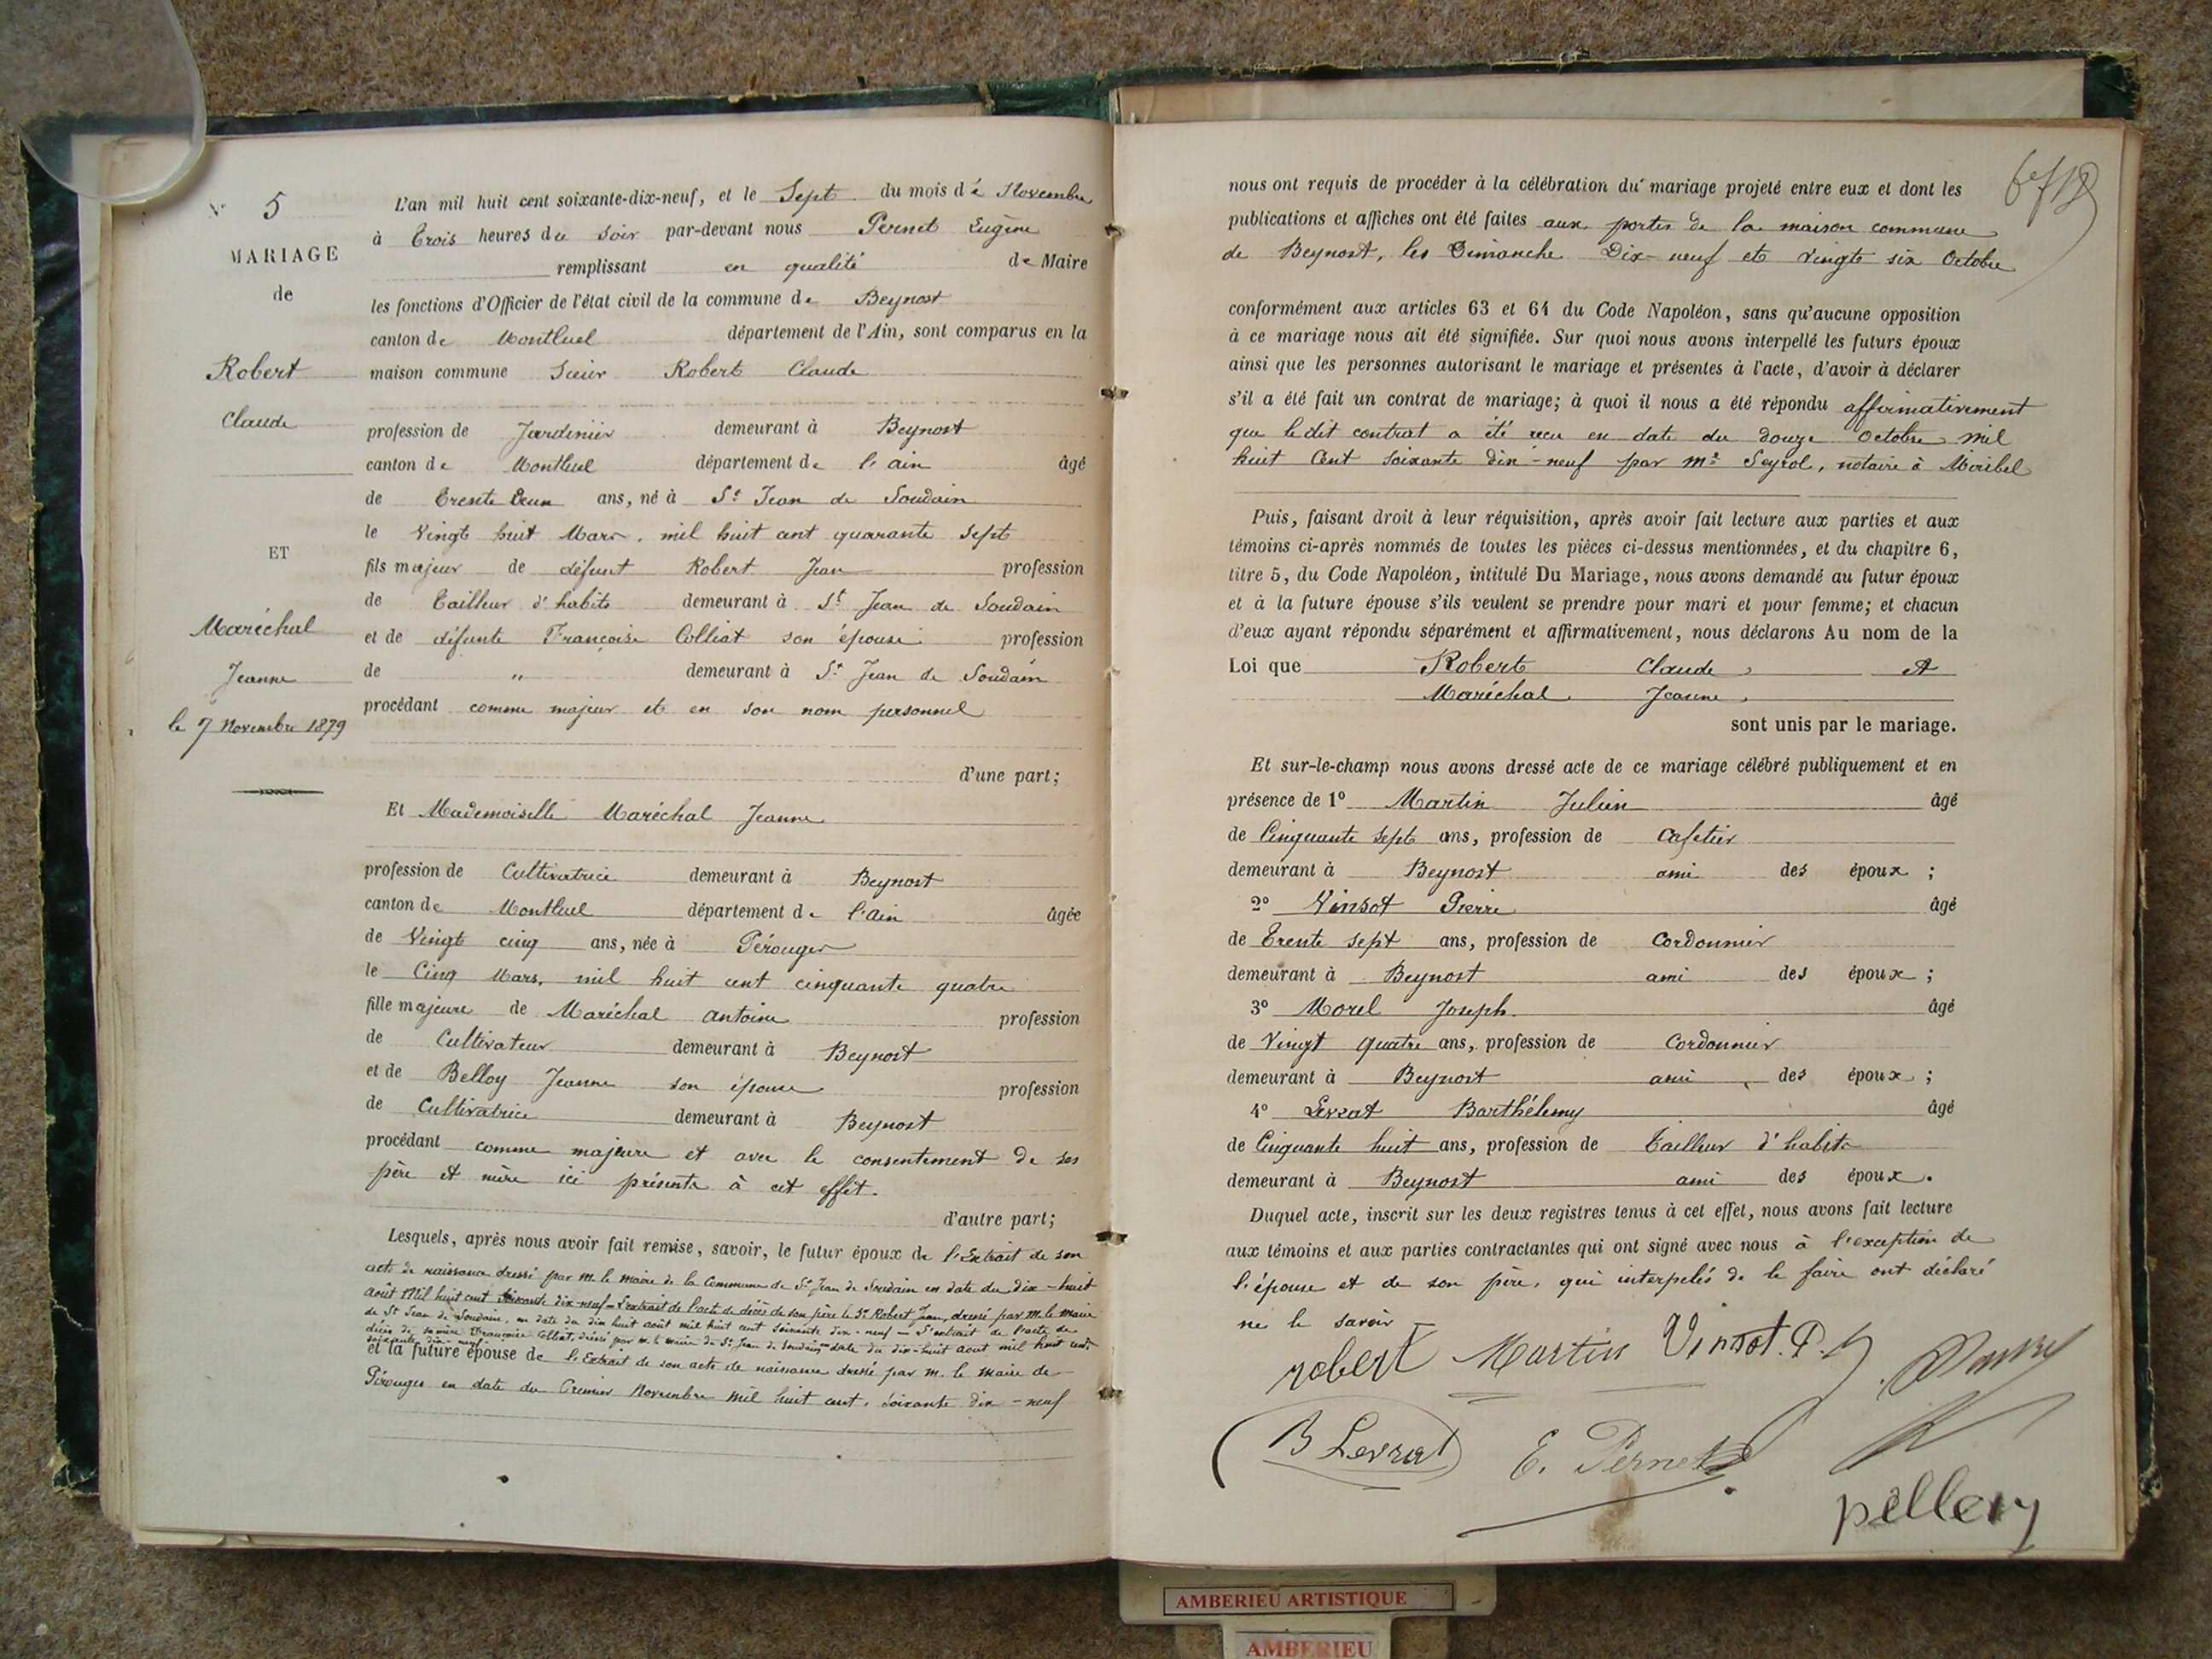 N° 5
MARIAGE
de
Robert
Claude
ET
Maréchal
Jeanne
le 7 Novembre 1879
L'an mil huit cent soixante-dix-neuf, et le Sept du mois de Novembre
à Trois heures du soir par-devant nous Pernet Eugène
remplissant en qualité de Maire
les fonctions d'Officier de l'état civil de la commune de Beynost
canton de Montluel département de l'Ain, sont comparus en la
maison commune Sieur Robert Claude
profession de Jardinier demeurant à Beynost
canton de Montluel département de l'ain âgé
de Trente Deux ans, né à St Jean de Soudain
le Vingt huit Mars, mil huit cent quarante sept
fils majeur de défunt Robert Jean profession
de Tailleur d'habits demeurant à St Jean de Soudain
et de défunte Françoise Colliat son épouse profession
de " demeurant à St Jean de Soudain
procédant comme majeur et en son nom personnel
d'une part;
Et Mademoiselle Maréchal Jeanne
profession de Cultivatrice demeurant à Beynost
canton de Montluel département de l'ain âgée
de Vingt cinq ans, née à Pérouges
le Cinq Mars, mil huit cent cinquante quatre
fille majeure de Maréchal antoine profession
de Cultivateur demeurant à Beynost
et de Belloy Jeanne son épouse profession
de Cultivatrice demeurant à Beynost
procédant comme majeure et avec le consentement de ses
père et mère ici présents à cet effet.
d'autre part;
Lesquels, après nous avoir fait remise, savoir, le futur époux de l'Extrait de son
acte de naissance dressé par m. le maire de la Commune de St Jean de Soudain en date du dix-huit
août mil huit cent soixante dix-neuf - L'extrait de l'acte de décès de son père le Sr Robert Jean, dressé par m. le maire
de St Jean de Soudain, en date du dix huit août mil huit cent soixante dix-neuf - L'extrait de l'acte de
décès de sa mère Françoise Colliat, dressé par m. le maire de St Jean de Soudain en date du dix-huit aout mil huit cent
soixante dix-neuf
et la future épouse de l'Extrait de son acte de naissance dressé par m. le maire de
Pérouges en date du Premier Novembre mil huit cent, soixante dix-neuf
nous ont requis de procéder à la célébration du mariage projeté entre eux et dont les
publications et affiches ont été faites aux portes de la maison commune
de Beynost, les Dimanche Dix-neuf et vingt six Octobre
conformément aux articles 63 et 64 du Code Napoléon, sans qu'aucune opposition
à ce mariage nous ait été signifiée. Sur quoi nous avons interpellé les futurs époux
ainsi que les personnes autorisant le mariage et présentes à l'acte, d'avoir à déclarer
s'il a été fait un contrat de mariage; à quoi il nous a été répondu affirmativement
que ledit contrat a été reçu en date du douze Octobre mil
huit Cent soixante dix-neuf par me Seyrol, notaire à Miribel
Puis, faisant droit à leur réquisition, après avoir fait lecture aux parties et aux
témoins ci-après nommés de toutes les pièces ci-dessus mentionnées, et du chapitre 6,
titre 5, du Code Napoléon, intitulé Du Mariage, nous avons demandé au futur époux
et à la future épouse s'ils veulent se prendre pour mari et pour femme; et chacun
d'eux ayant répondu séparément et affirmativement, nous déclarons Au nom de la
Loi que Robert Claude, et
Maréchal Jeanne,
sont unis par le mariage.
Et sur-le-champ nous avons dressé acte de ce mariage célébré publiquement et en
présence de 1° Martin Julien âgé
de Cinquante sept ans, profession de Cafetier
demeurant à Beynost ami des époux ;
2° Vinsot Pierre âgé
de Trente sept ans, profession de Cordonnier
demeurant à Beynost ami des époux ;
3° Morel Joseph âgé
de Vingt quatre ans, profession de Cordonnier
demeurant à Beynost ami des époux ;
4° Levrat Barthélemy âgé
de Cinquante huit ans, profession de Tailleur d'habits
demeurant à Beynost ami des époux.
Duquel acte, inscrit sur les deux registres tenus à cet effet, nous avons fait lecture
aux témoins et aux parties contractantes qui ont signé avec nous à l'exception de
l'épouse et de son père, qui interpelés de le faire ont déclaré
ne le savoir
robert Martin Vinsot. P.
B Levrat E. Pernet
pellery
AMBERIEU ARTISTIQUE
AMBERIEU